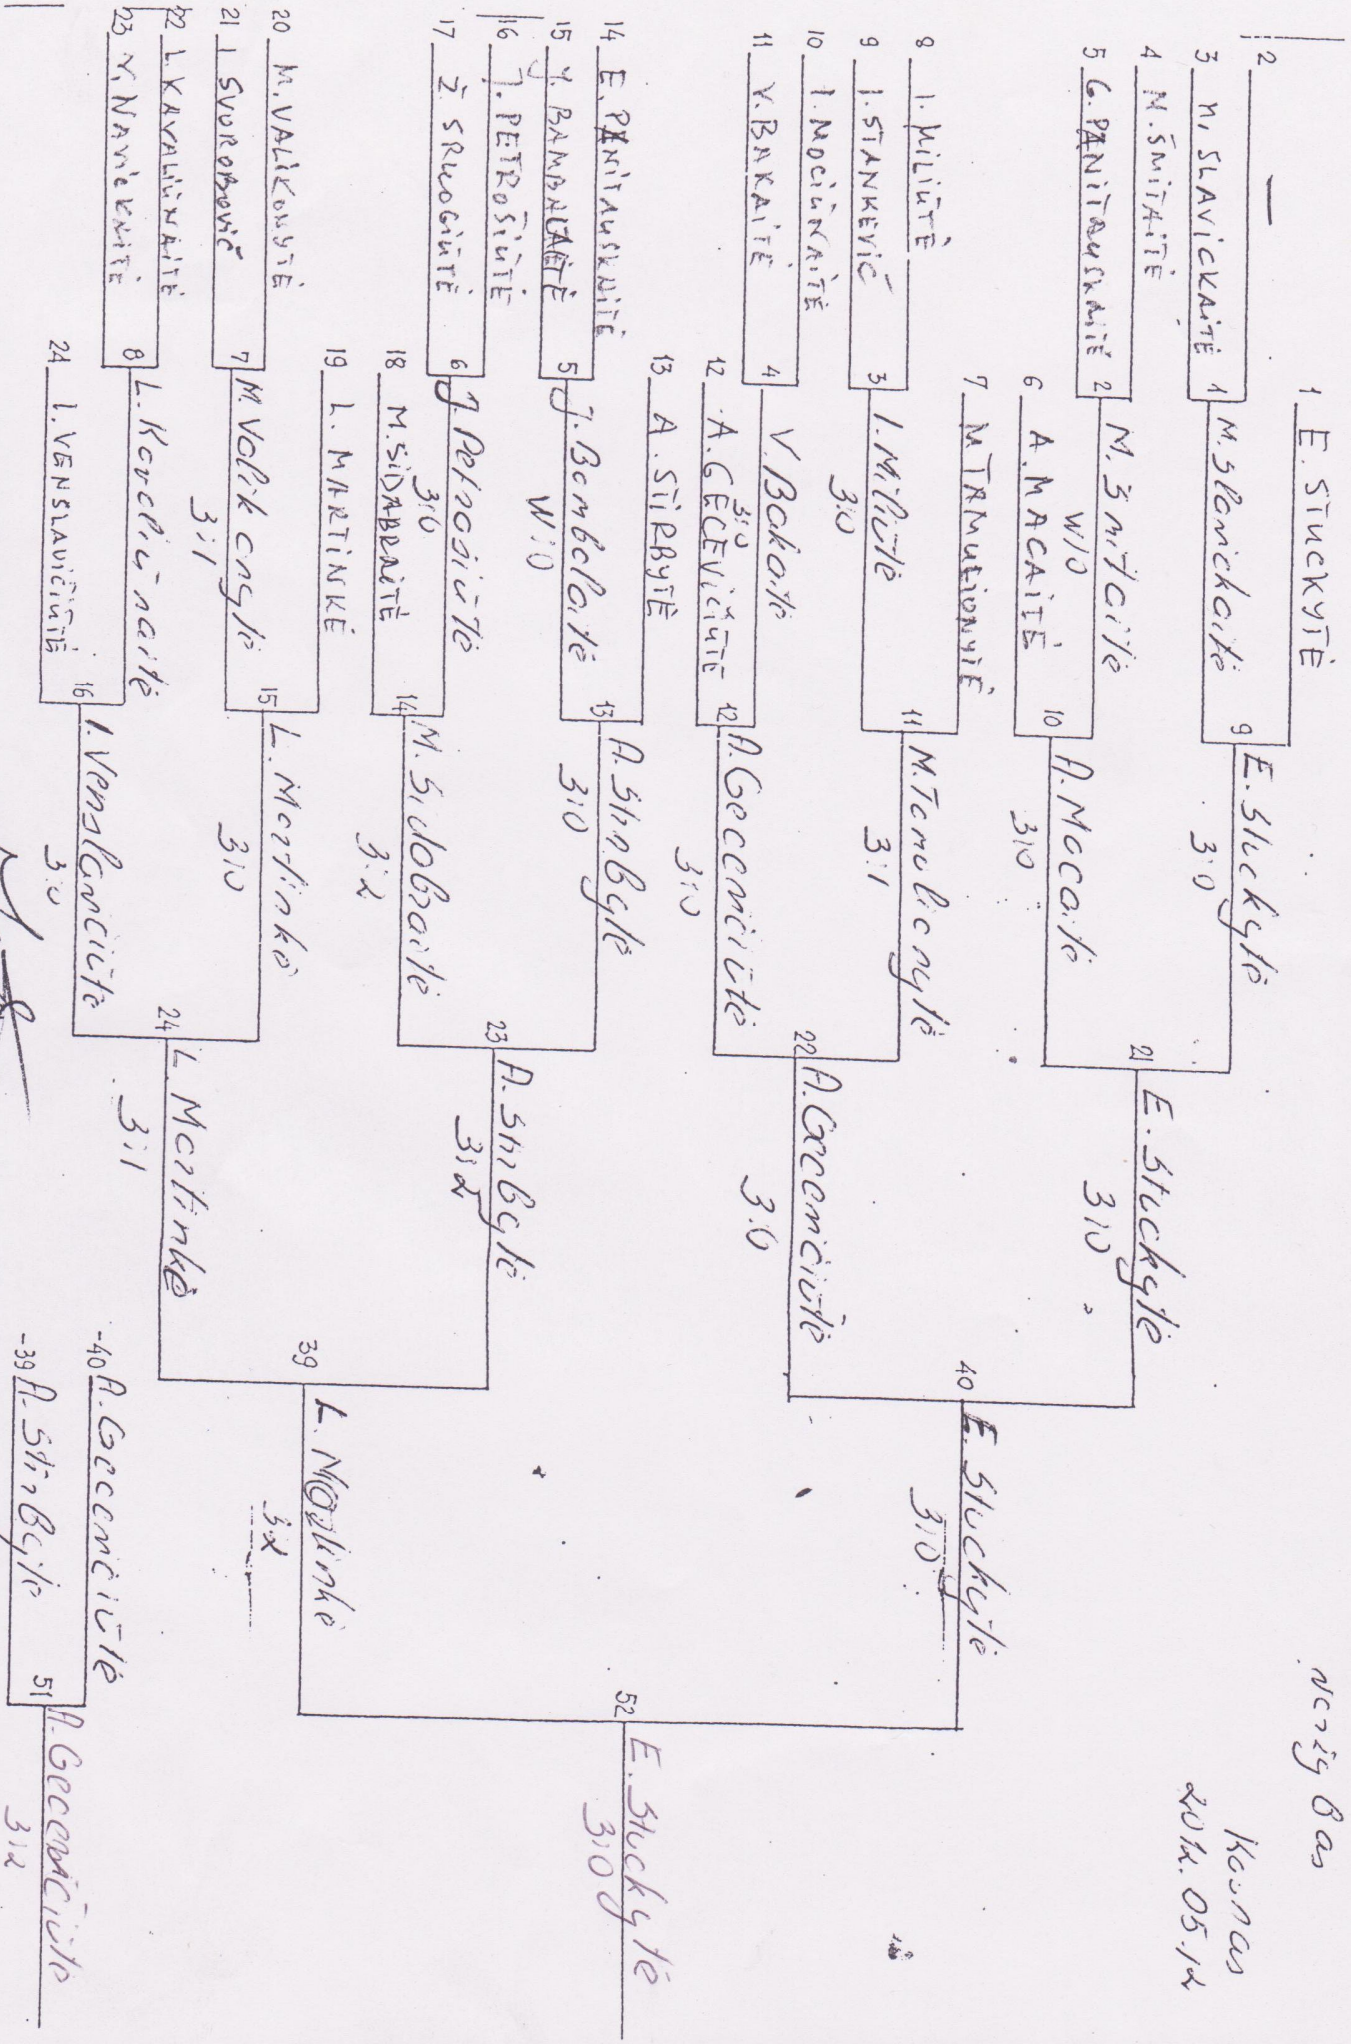 Kaunas
2012.05.12
1 E. STUCKYTĖ
2 —
3 M. SLAVICKAITĖ
4 M. ŠMITAITĖ
5 G. PANITAUSKAITĖ
6 A. MACAITĖ
7 M TAMULIONYTĖ
8 I. MILIŪTĖ
9 I. STANKEVIČ
10 I. MOCIŪNAITĖ
11 V. BAKAITĖ
12 A. GECEVIČIŪTĖ
13 A. STIRBYTĖ
14 E. PANITAUSKAITĖ
15 J. BAMBALAITĖ
16 J. PETROŠIŪTĖ
17 Ž. SRUOGIŪTĖ
18 M. SIDABRAITĖ
19 L. MARTINKĖ
20 M. VALIKONYTĖ
21 I SUOROBOVIČ
22 L. KAVALIŪNAITĖ
23 V. NAVICKAITĖ
24 I. VENSLAVIČIŪTĖ
1 M. Slavickaitė
2 M. Šmitaitė
W:O
3 I. Miliūtė
3:0
4 V. Bakaitė
3:0
5 J. Bambalaitė
W:O
6 J. Petrošiūtė
3:0
7 M. Valikonytė
3:1
8 L. Kavaliūnaitė
9 E. Stuckytė
3:0
10 A. Macaitė
3:0
11 M. Tamulionytė
3:1
12 A. Gecevičiūtė
3:0
13 A. Stirbytė
3:0
14 M. Sidabraitė
3:2
15 L. Martinkė
3:0
16 I. Venslavičiūtė
3:0
21 E. Stuckytė
3:0
22 A. Gecevičiūtė
3:0
23 A. Stirbytė
3:2
24 L. Martinkė
3:1
40 E. Stuckytė
3:0
39 L. Martinkė
3:2
52 E. Stuckytė
3:0
-40 A. Gecevičiūtė
-39 A. Stirbytė
51 A. Gecevičiūtė
3:2